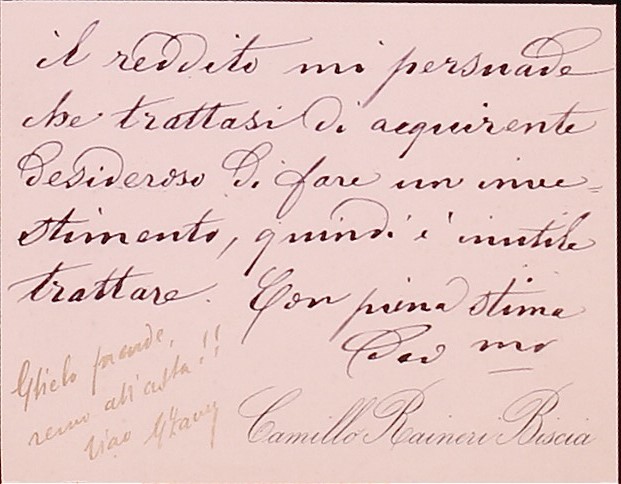 il reddito mi persuade
che trattasi di acquirente
desideroso di fare un inve=
stimento, quindi è inutile
trattare. Con piena stima
Dev mo
all'asta!!
Camillo Raineri Biscia